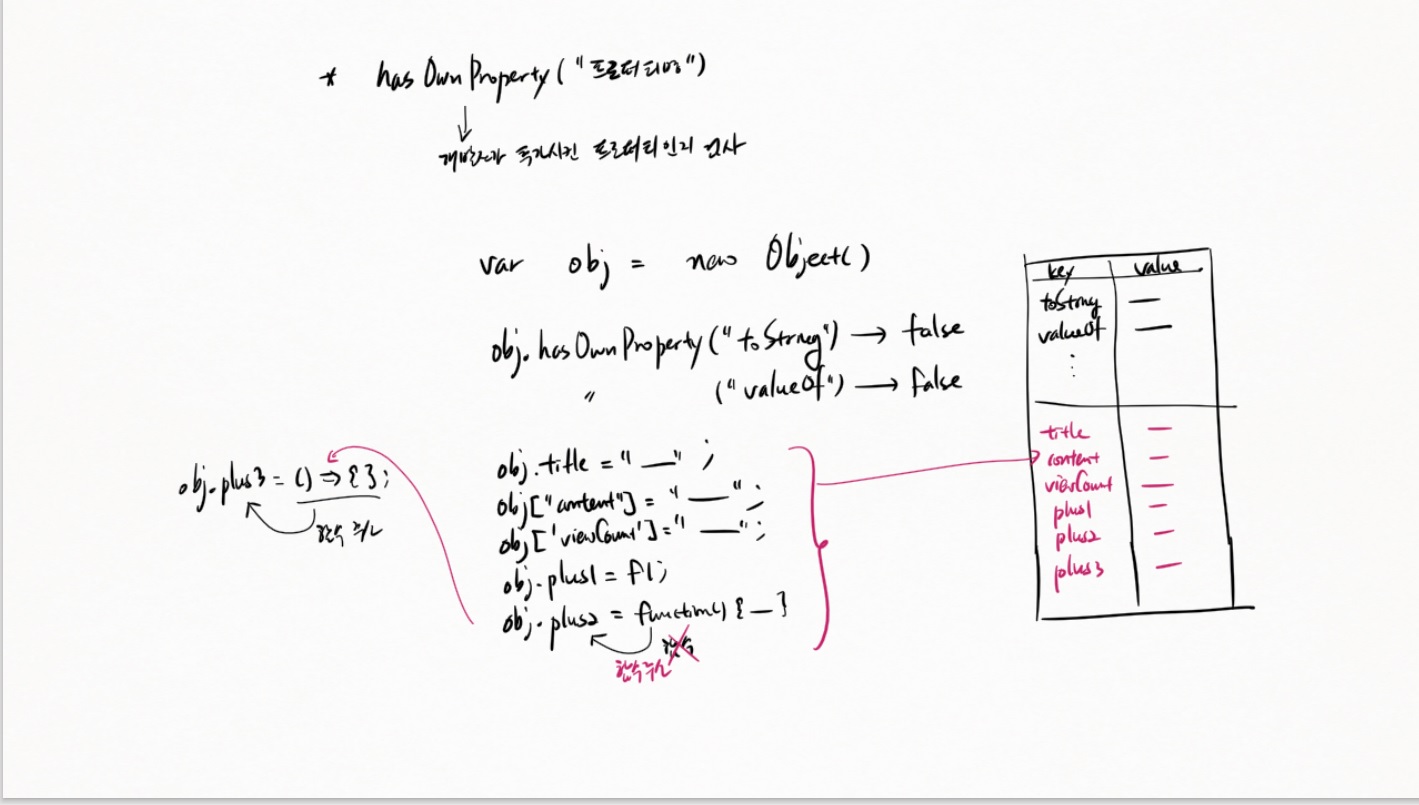 * hasOwnProperty("프로퍼티명")
↓
개발자가 추가시킨 프로퍼티인지 검사
var obj = new Object()
obj.hasOwnProperty("toString") → false
" ("valueOf") → false
obj.title = "—" ;
obj["content"] = "—" ;
obj['viewCount'] = "—" ;
obj.plus1 = f1;
obj.plus2 = function() { — }
함수
함수 주소
obj.plus3 = () => { };
함수 주소
key value
toString —
valueOf —
⋮
title —
content —
viewCount —
plus1 —
plus2 —
plus3 —